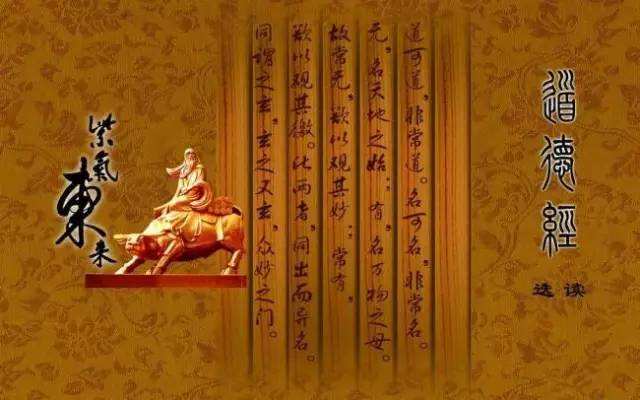 道德經
选读
道可道，非常道。名可名，非常名。
无，名天地之始；有，名万物之母。
故常无，欲以观其妙；常有，
欲以观其徼。此两者，同出而异名。
同谓之玄，玄之又玄，众妙之门。
紫氣東来